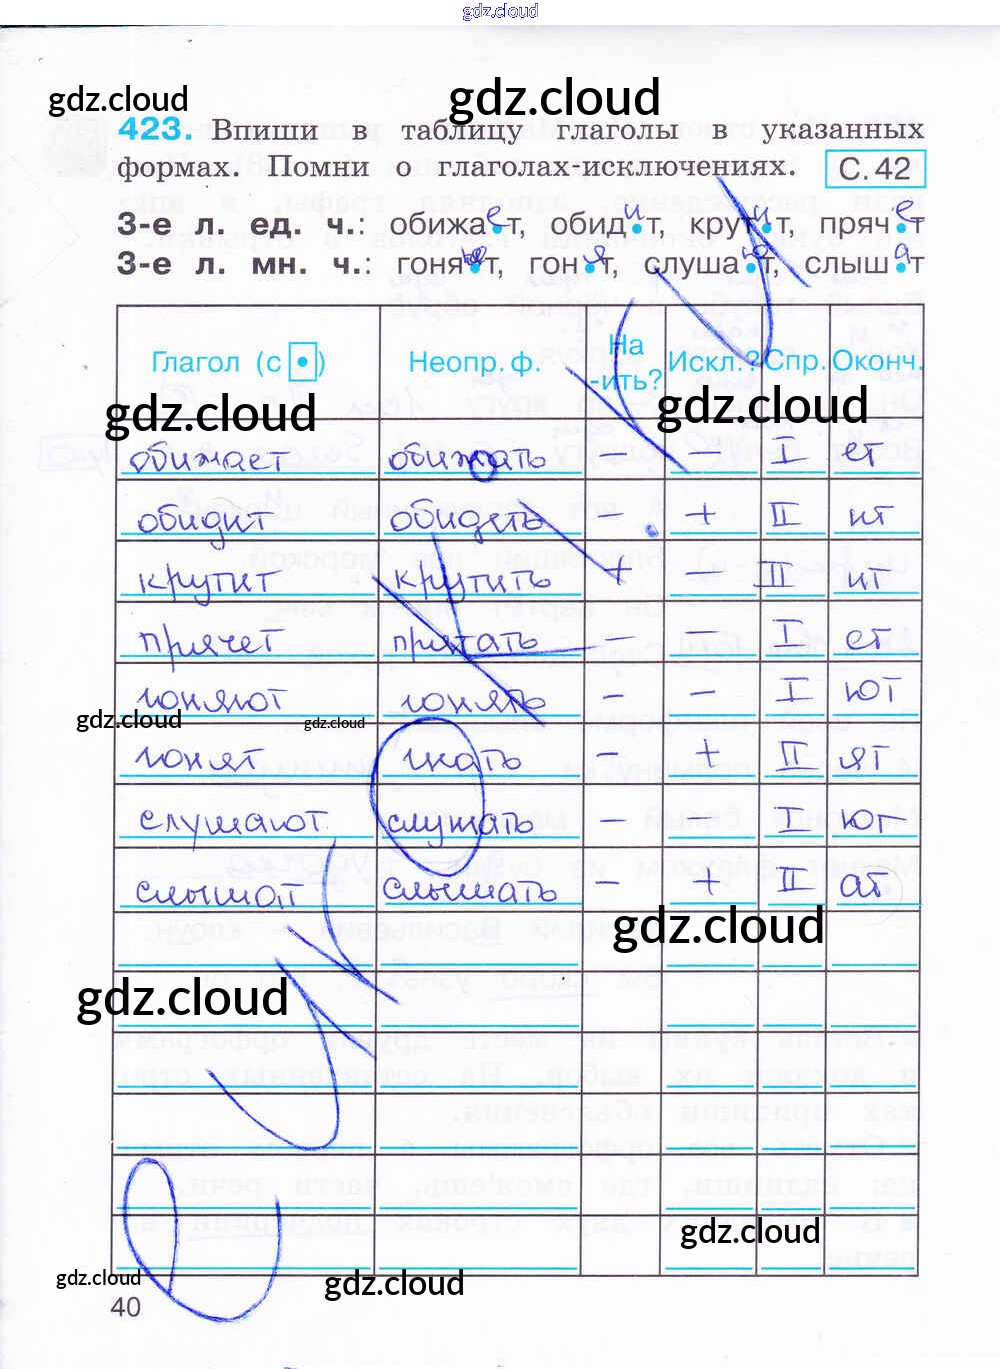 gdz.cloud
gdz.cloud
gdz.cloud
423. Впиши в таблицу глаголы в указанных
формах. Помни о глаголах исключениях. С. 42
3-е л. ед. ч.: обижает, обидит, крутит, прячет
3-е л. мн. ч.: гоняют, гонят, слушают, слышат
Глагол (с •) Неопр. ф. На -ить? Искл.? Спр. Оконч.
gdz.cloud
gdz.cloud
обижает обижать – – I ет
обидит обидеть – + II ит
крутит крутить + – II ит
прячет прятать – – I ет
гоняют гонять – – I ют
gdz.cloud
gdz.cloud
гонят гнать – + II ят
слушают слушать – – I ют
слышат слышать – + II ат
gdz.cloud
gdz.cloud
gdz.cloud
gdz.cloud
gdz.cloud
40